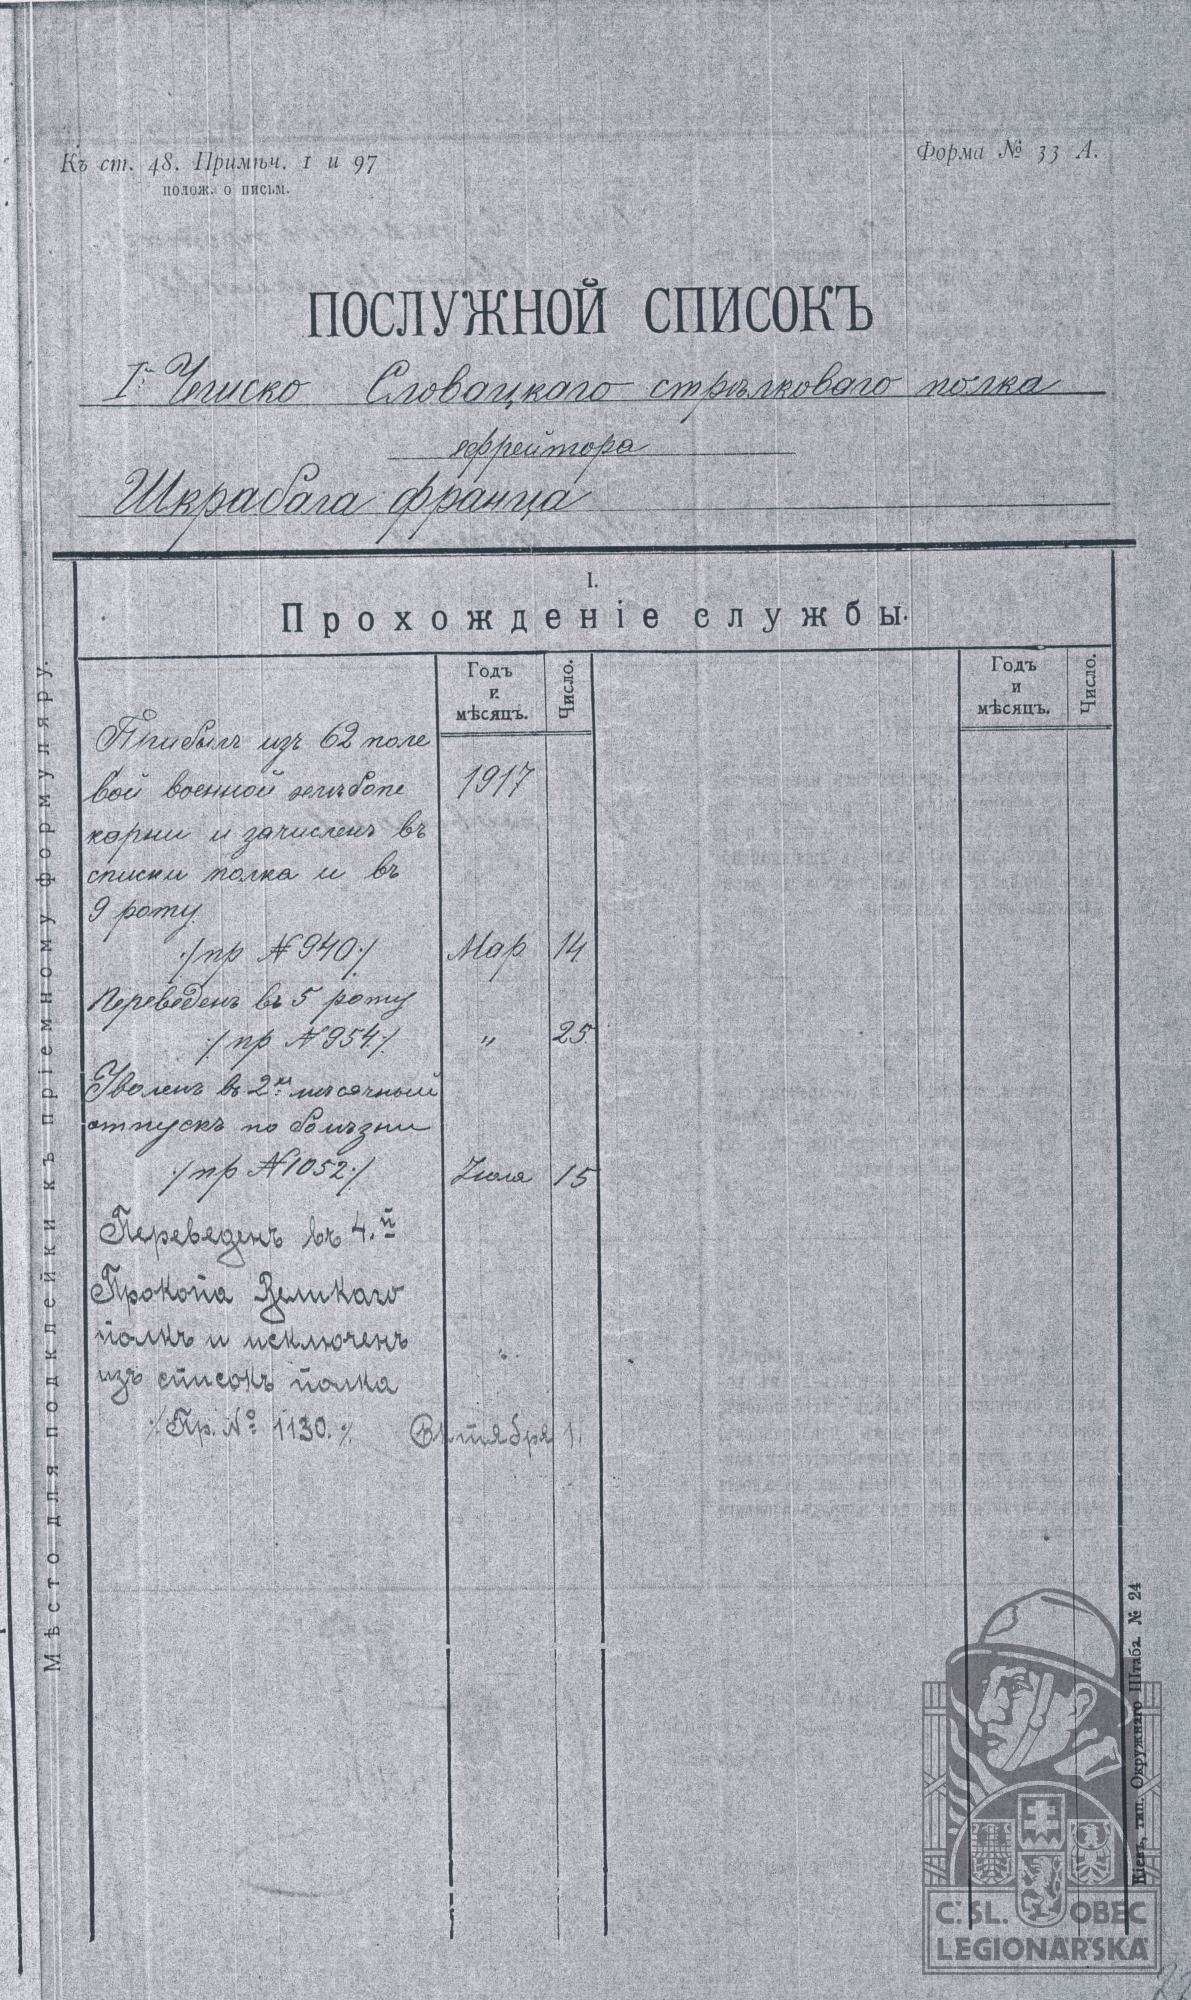 Къ ст. 48. Примѣч. 1 и 97
полож. о письм.
Форма № 33 А.
ПОСЛУЖНОЙ СПИСОКЪ
Iго Чешско Словацкаго стрѣлковаго полка
ефрейтора
Шкрабага Франца
I.
Прохожденіе службы.
Годъ и мѣсяцъ.
Число.
Годъ и мѣсяцъ.
Число.
Прибылъ изъ 62 поле
вой военной хлѣбопе 1917
карни и зачисленъ въ
списки полка и въ
9 роту.
./пр №940./ Мар 14
Переведенъ въ 5 роту
./пр №954./ „ 25
Уволенъ въ 2хъ мѣсячный
отпускъ по болѣзни
./пр №1052./ Іюля 15
Переведенъ въ 4.й
Прокопа Великаго
полкъ и исключенъ
изъ списокъ полка
./Пр. № 1130./. 1.
Мѣсто для подклейки къ пріемному формуляру.
Кіевъ, тип. Окружнаго Штаба № 24
Č. SL. OBEC
LEGIONÁŘSKÁ